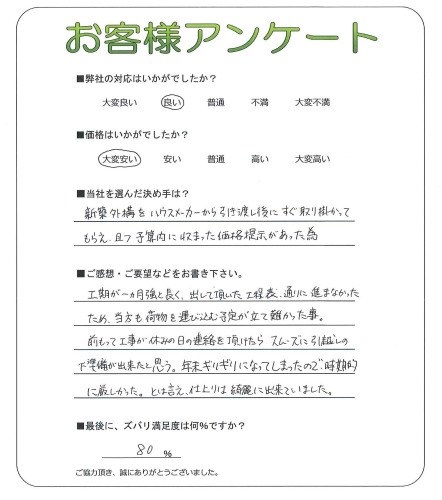 お客様アンケート
■弊社の対応はいかがでしたか?
大変良い 良い 普通 不満 大変不満
■価格はいかがでしたか?
大変安い 安い 普通 高い 大変高い
■当社を選んだ決め手は?
新築外構をハウスメーカーから引き渡し後にすぐ取り掛かって
もらえ、且つ予算内に収まった価格提示があった為
■ご感想・ご要望などをお書き下さい。
工期が一カ月強と長く、出して頂いた工程表通りに進まなかった
ため、当方も荷物を運び込む予定が立て難かった事。
前もって工事が休みの日の連絡を頂けたらスムーズに引越しの
下準備が出来たと思う。年末ギリギリになってしまったので、時期的
に厳しかった。とは言え、仕上りは綺麗に出来ていました。
■最後に、ズバリ満足度は何%ですか?
80 %
ご協力頂き、誠にありがとうございました。